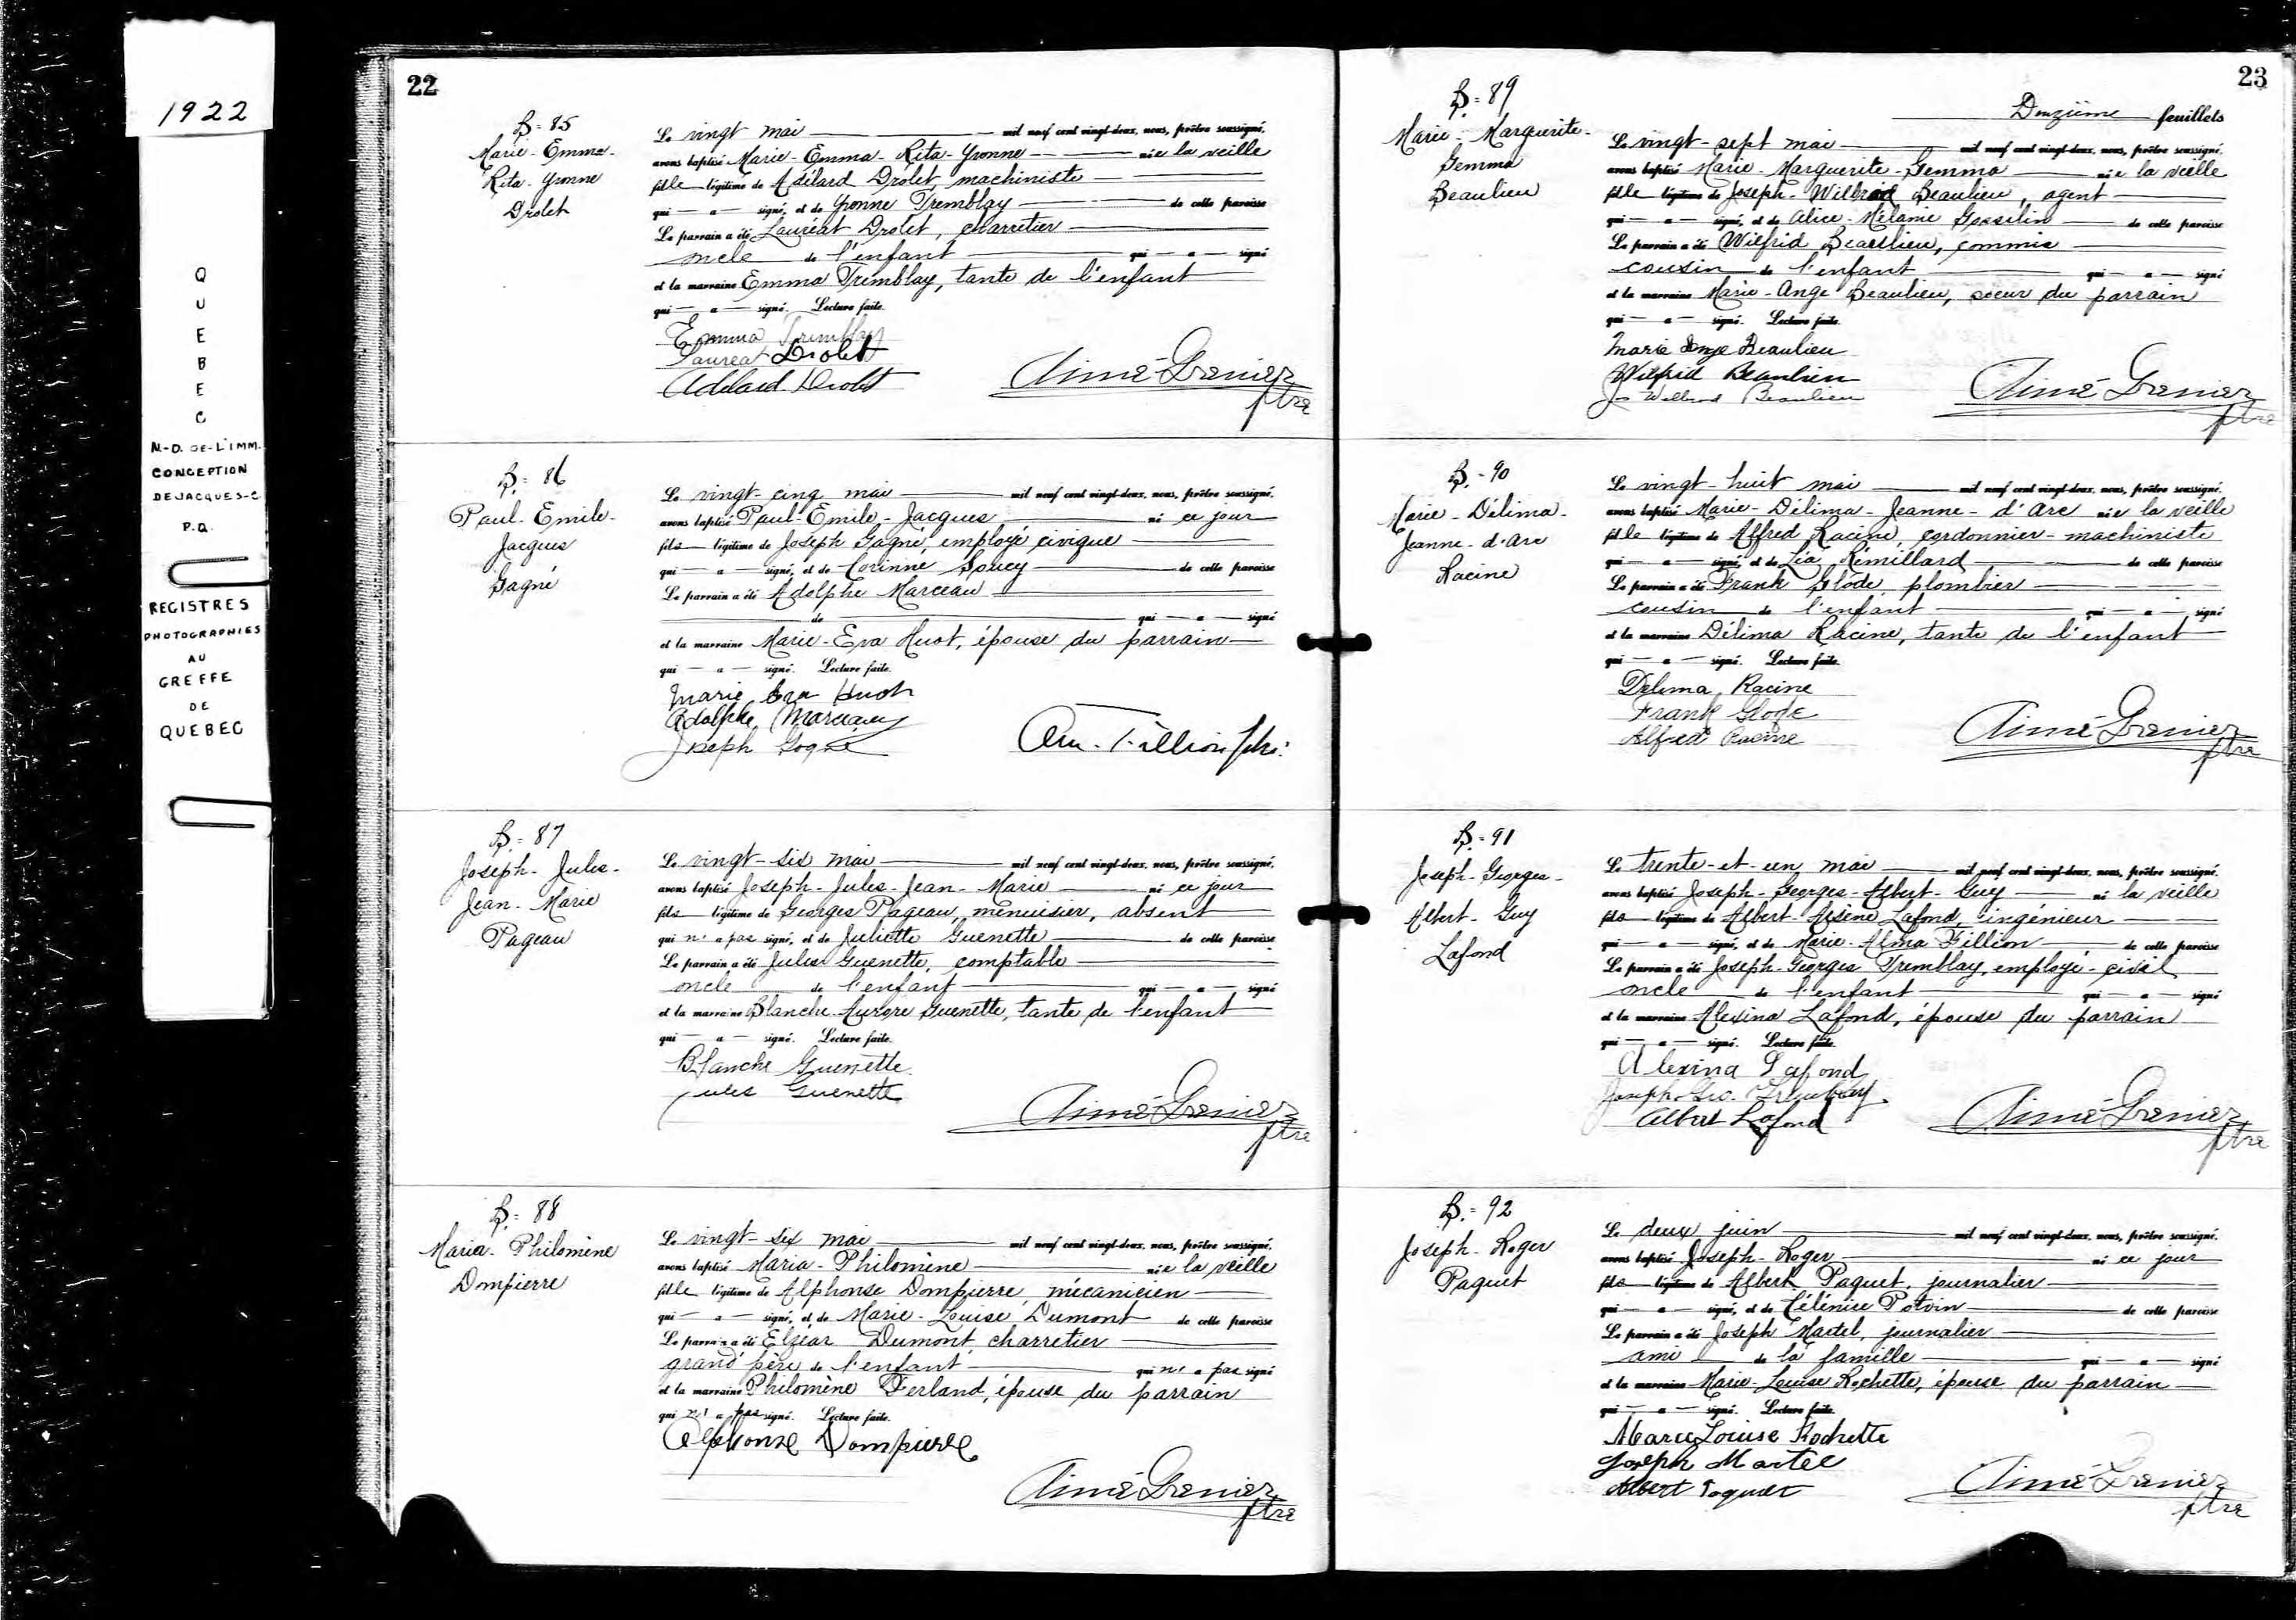 1922
QUEBEC
N-D. DE-L'IMM.
CONCEPTION
DE JACQUES-C
P.Q.
REGISTRES
PHOTOGRAPHIES
AU
GREFFE
DE
QUEBEC
22
B.=85
Marie-Emma-
Rita-Yvonne
Drolet
Le vingt mai mil neuf cent vingt-deux, nous, prêtre soussigné,
avons baptisé Marie-Emma-Rita-Yvonne née la veille
fille légitime de Adélard Drolet, machiniste
qui — a — signé, et de Yvonne Tremblay de cette paroisse
Le parrain a été Lauréat Drolet, charretier
oncle de l'enfant qui — a — signé
et la marraine Emma Tremblay, tante de l'enfant
qui — a — signé. Lecture faite.
Emma Tremblay
Laureat Drolet
Adélard Drolet
Aimé Grenier
ptre
B.=86
Paul-Emile-
Jacques
Gagné
Le vingt-cinq mai mil neuf cent vingt-deux, nous, prêtre soussigné,
avons baptisé Paul-Emile-Jacques né ce jour
fils légitime de Joseph Gagné, employé civique
qui — a — signé, et de Corinne Soucy de cette paroisse
Le parrain a été Adolphe Marceau
de qui — a — signé
et la marraine Marie-Eva Huot, épouse du parrain
qui — a — signé. Lecture faite.
Marie Eva Huot
Adolphe Marceau
Joseph Gagné
Fillion ptre
B.=87
Joseph-Jules-
Jean-Marie
Pageau
Le vingt-six mai mil neuf cent vingt-deux, nous, prêtre soussigné,
avons baptisé Joseph-Jules-Jean-Marie né ce jour
fils légitime de Georges Pageau, menuisier, absent
qui n'a pas signé, et de Juliette Guenette de cette paroisse
Le parrain a été Jules Guenette, comptable
oncle de l'enfant qui — a — signé
et la marraine Blanche-Aurore Guenette, tante de l'enfant
qui — a — signé. Lecture faite.
Blanche Guenette
Jules Guenette
Aimé Grenier
ptre
B.=88
Maria-Philomène
Dompierre
Le vingt-six mai mil neuf cent vingt-deux, nous, prêtre soussigné,
avons baptisé Maria-Philomène née la veille
fille légitime de Alphonse Dompierre, mécanicien
qui — a — signé, et de Marie-Louise Dumont de cette paroisse
Le parrain a été Elzéar Dumont, charretier
grand'père de l'enfant qui n'a pas signé
et la marraine Philomène Ferland, épouse du parrain
qui n'a pas signé. Lecture faite.
Alphonse Dompierre
Aimé Grenier
ptre
23
Douzième feuillets
B.=89
Marie-Marguerite-
Gemma
Beaulieu
Le vingt-sept mai mil neuf cent vingt-deux, nous, prêtre soussigné,
avons baptisé Marie-Marguerite-Gemma née la veille
fille légitime de Joseph-Willbrod Beaulieu, agent
qui — a — signé, et de Alice-Mélanie Gosselin de cette paroisse
Le parrain a été Wilfrid Beaulieu, commis
cousin de l'enfant qui — a — signé
et la marraine Marie-Ange Beaulieu, soeur du parrain
qui — a — signé. Lecture faite.
Marie Ange Beaulieu
Wilfrid Beaulieu
Jos Willbrod Beaulieu
Aimé Grenier
ptre
B.=90
Marie-Délima-
Jeanne-d'Arc
Racine
Le vingt-huit mai mil neuf cent vingt-deux, nous, prêtre soussigné,
avons baptisé Marie-Délima-Jeanne-d'Arc née la veille
fille légitime de Alfred Racine, cordonnier-machiniste
qui — a — signé, et de Léa Rémillard de cette paroisse
Le parrain a été Frank Glode, plombier
cousin de l'enfant qui — a — signé
et la marraine Délima Racine, tante de l'enfant
qui — a — signé. Lecture faite.
Delima Racine
Frank Glode
Alfred Racine
Aimé Grenier
ptre
B.=91
Joseph-Georges-
Albert-Guy
Lafond
Le trente-et-un mai mil neuf cent vingt-deux, nous, prêtre soussigné,
avons baptisé Joseph-Georges-Albert-Guy né la veille
fils légitime de Albert-Arsène Lafond, ingénieur
qui — a — signé, et de Marie-Alma Fillion de cette paroisse
Le parrain a été Joseph-Georges Tremblay, employé-civil
oncle de l'enfant qui — a — signé
et la marraine Alexina Lafond, épouse du parrain
qui — a — signé. Lecture faite.
Alexina Lafond
Joseph Geo. Tremblay
Albert Lafond
Aimé Grenier
ptre
B.=92
Joseph-Roger
Paquet
Le deux juin mil neuf cent vingt-deux, nous, prêtre soussigné,
avons baptisé Joseph-Roger né ce jour
fils légitime de Albert Paquet, journalier
qui — a — signé, et de Célénise Potvin de cette paroisse
Le parrain a été Joseph Martel, journalier
ami de la famille qui — a — signé
et la marraine Marie-Louise Rochette, épouse du parrain
qui — a — signé. Lecture faite.
Marie Louise Rochette
Joseph Martel
Albert Paquet
Aimé Grenier
ptre